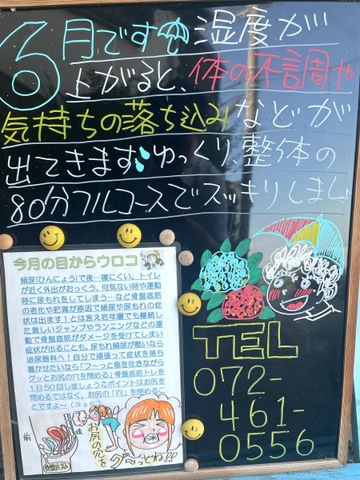 6月です 湿度が
上がると、体の不調や
気持ちの落ち込みなどが
出てきます ゆっくり、整体の
80分フルコースでスッキリしましょ
今月の目からウロコ
頻尿(ひんにょう)で夜…寝にくい、トイレ
が近く外出がおっくう、何気ない時や運動
時に尿もれをしてしまう…など骨盤底筋
の老化や肥満が原因で頻尿や尿もれの症
状は出ます！とは言え若年層でも継続し
た激しいジャンプやランニングなどの運
動で骨盤底筋がダメージを受けてしまい
症状が出ることも。尿もれ頻尿が酷いなら
泌尿器科へ！自分で頑張って症状を落ち
着かせたいなら「フ〜っと息を吐きながら
グッとお尻の穴を閉める」骨盤底筋トレを
1日50回しましょう♪ポイントはお尻を
閉めるではなく、お尻の「穴」を閉めるこ
とですよ〜
お尻の穴を
グ〜っとね!!
前
後
TEL
072-
461-
0556